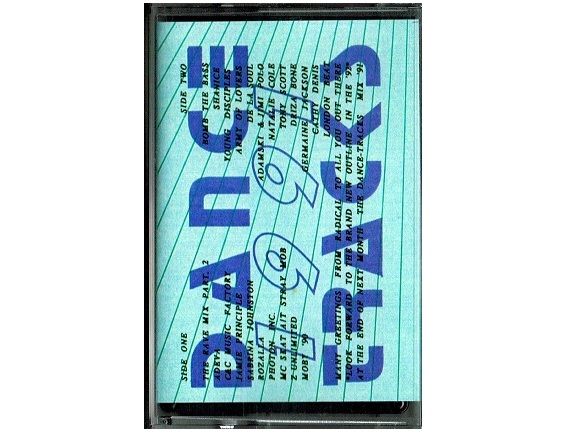 DANCE
1991
TRACKS
SIDE ONE
THE RAVE MIX PART. 2
ADEVA
C&C MUSIC FACTORY
JAMIE PRINCIPLE
SABRINA JOHNSTON
ROZALLA
PHOTON INC.
MC SKAT/AIT STRAY MOB
2 UNLIMITED
MOBY '90
SIDE TWO
BOMB THE BASS
SHANICE
YOUNG DISCIPLES
ARMY OF LOVERS
DE LA SOUL
ADAMSKI & JIMI POLO
NATALIE COLE
TONY SCOTT
DRIZA BONE
GERMAINE JACKSON
CATHY DENIS
LONDON BEAT
MANY GREETINGS FROM RADICAL TO ALL YOU OUT THERE
*LOOK FORWARD TO THE BRAND NEW OUTLINE IN THE '92*
AT THE END OF NEXT MONTH THE DANCE-TRACKS MIX '91